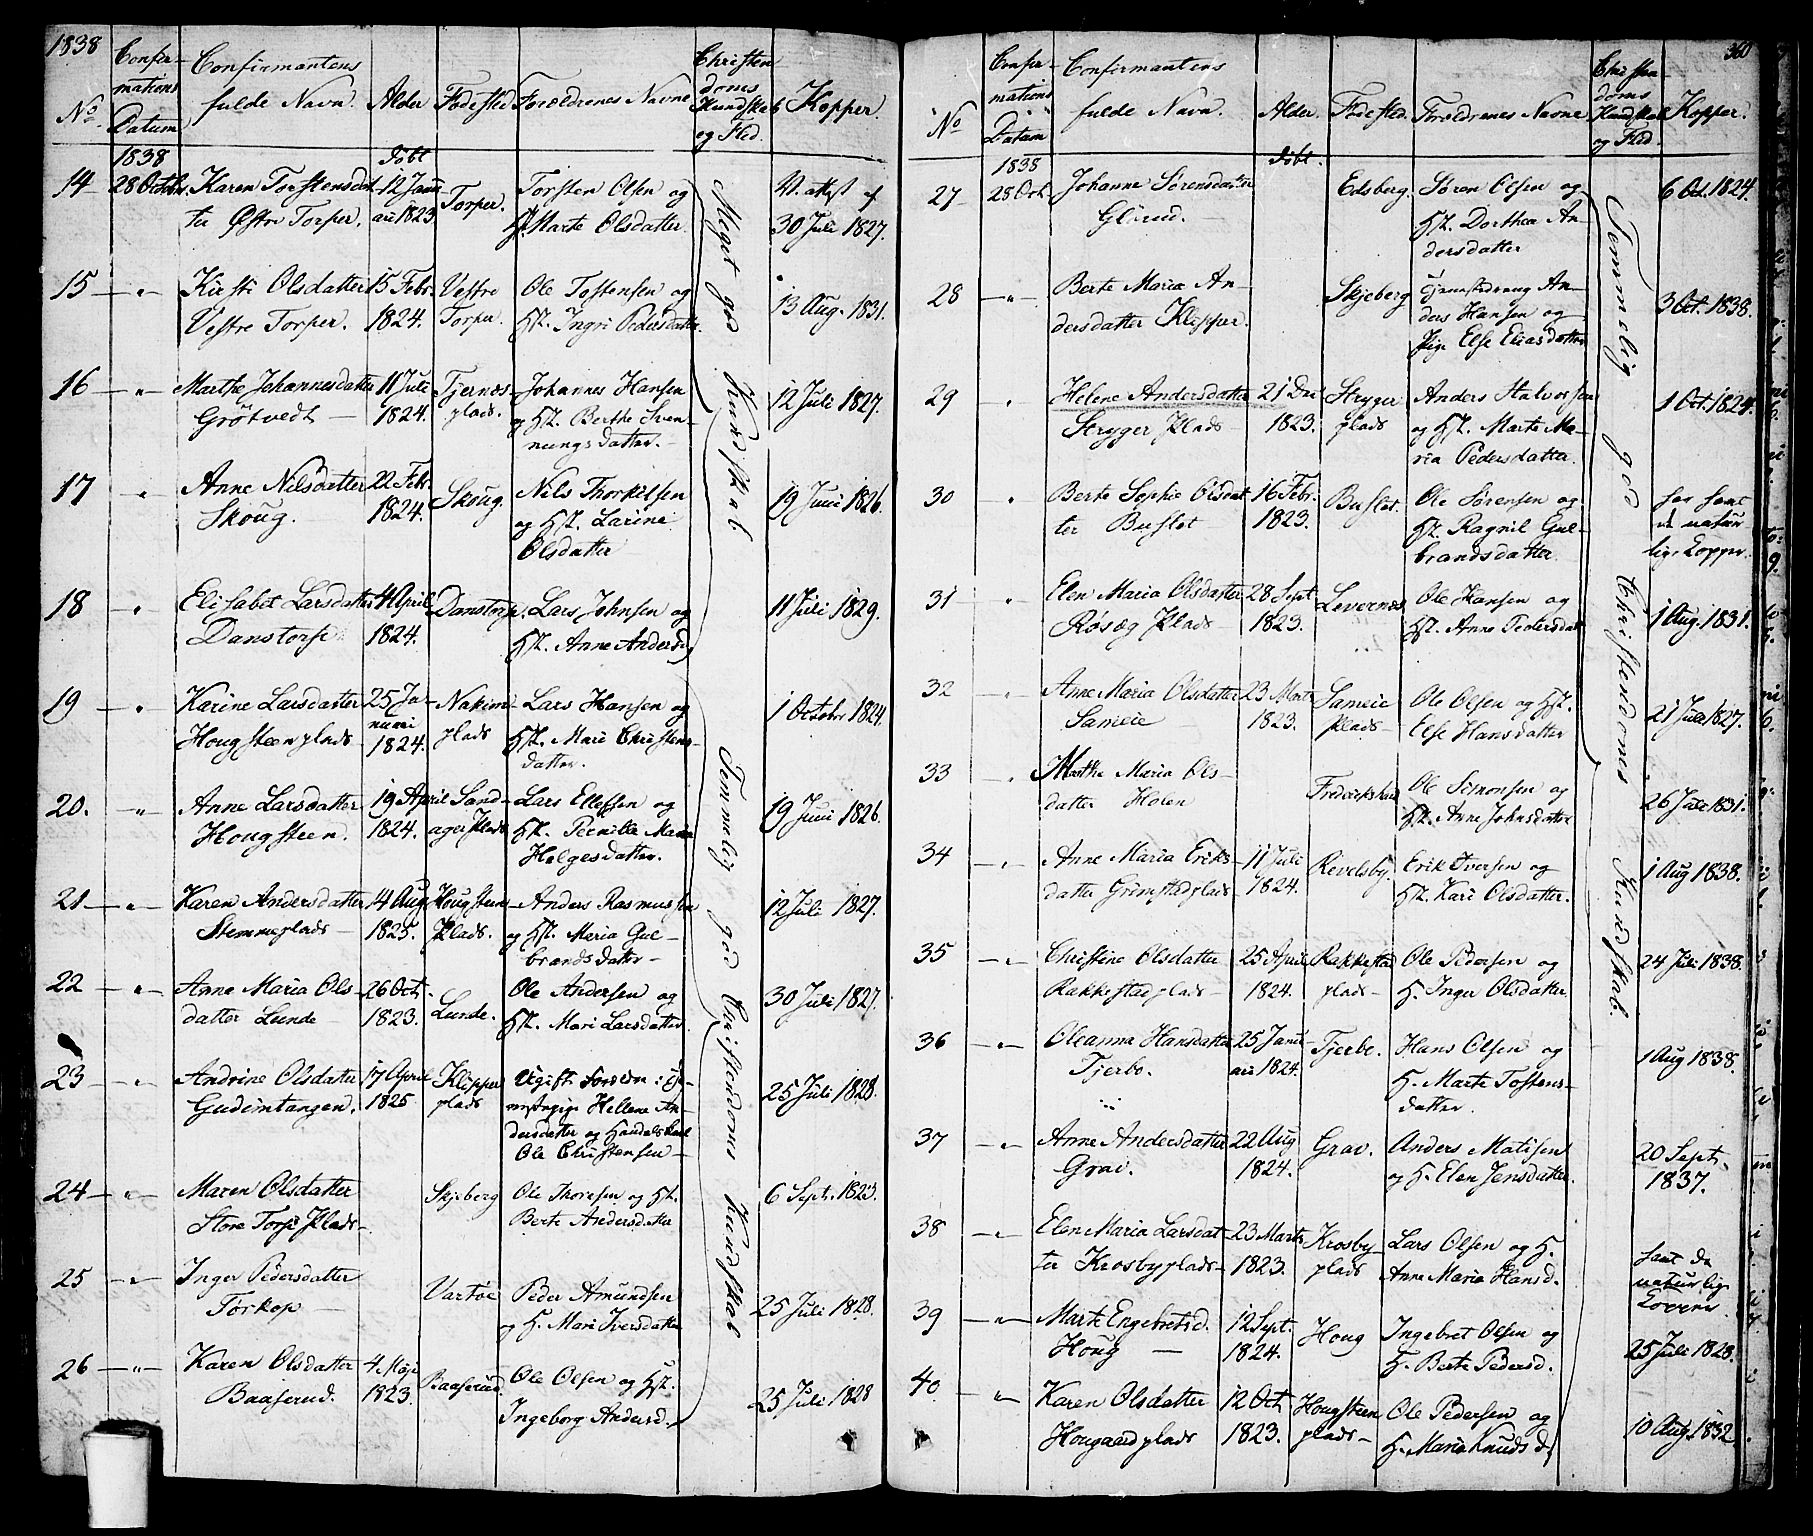 1838
No
Confir-
mations
Datum
Confirmantens
fulde Navn.
Alder
Fødested
Forældrenes Navne
Christen
doms
Kundskab
og Flid.
Kopper.
1838
døbt
14
28 Octbr.
Karen Torstensdat
ter Østre Torper.
12 Janu
ari 1823
Torper.
Torsten Olsen og
H. Marte Olsdatter.
V. attest af
30 Juli 1827.
15 - " -
Kirsti Olsdatter
Vestre Torper.
15 Febr.
1824.
Vestre
Torper.
Ole Tostensen og
Hst. Ingri Pedersdatter.
13 Aug. 1831.
16 - "
Marthe Johannesdatter
Grötvedt -
11 Juli
1824.
Tjernæs
plads.
Johannes Hansen
og Hst. Berthe Sven-
nungsdatter. -
12 Juli 1827.
17 "
Anne Nilsdatter
Skoug. -
22 Febr.
1824.
Skoug.
Nils Thorkelsen
og Hst. Larine
Olsdatter
19 Juni 1826.
18 "
Elisabet Larsdatter
Danstorp
4 April
1824.
Danstorp.
Lars Johnsen og
Hst. Anne Andersd.
11 Juli 1829.
19 - "
Karine Larsdatter
Hougsteen plads
25 Ja-
nuari
1824.
Nakim
plads
Lars Hansen og
Hst. Mari Christens-
datter.
1 Octobr 1824.
20. - "
Anne Larsdatter
Hougsteen.
19 April
1824.
Sand-
ager Plads.
Lars Ellefsen og
Hst. Pernille Maria
Helgesdatter.
19 Juni 1826.
21 - " -
Karen Andersdatter
Stemmeplads -
14 Aug
1825.
Hougsteen
Plads.
Anders Rasmussen
og Hst. Maria Gul-
brandsdatter -
12 Juli 1827.
22 "
Anne Maria Ols-
datter Lunde -
26 Oct
1823.
Lunde.
Ole Andersen og
Hst. Mari Larsdatter.
30 Juli 1827.
23 - " -
Andrine Olsdatter
Gudimtangen.
17 April
1825
Klipper
plads
Ugift
Hellene An-
dersdatter og
Ole Christensen -
25 Juli 1828.
24 - " -
Maren Olsdatter
Store Torp Plads -
Skjeberg
Ole Thoresen og Hst.
Berte Andersdatter
6 Sept. 1823.
25 - " -
Inger Pedersdatter
Torkop -
Vartøe
Peder Amundsen
og H. Mari Iversdatter
25 Juli 1828.
26 - " -
Karen Olsdatter
Baaserud.
4 Maje
1823.
Baaserud.
Ole Olsen og Hst.
Ingeborg Andersd.
25 Juli 1828
Meget god Kundskab
Temmelig god Christendoms Kundskab
360
No
Confir-
mations
Datum
Confirmantens
fulde Navn.
Alder.
Fødested.
Forældrenes Navne
Christen-
doms
Kundskab
og Flid.
Kopper.
1838
døbt.
27
28 Octb.
Johanne Sörensdatter
Glörud. -
Edsberg.
Sören Olsen og
Hst. Dorthea An-
dersdatter
6 Oct. 1824.
28 - " -
Berte Maria An-
dersdatter Klipper.
Skjeberg
An-
ders Hansen og
Pige Else Eliasdatter
3 Oct. 1838.
29 "
Helene Andersdatter
Stryger Plads -
21 Dec
1823.
Stryger
plads
Anders Halvorsen
og Hst. Marte Ma-
ria Pedersdatter.
1 Oct. 1824.
30 "
Berte Sophie Olsdat
ter Buslet -
16 Febr.
1823.
Buslet.
Ole Sörensen og
Hst. Ragnil Gul-
brandsdatter.
har havt
de natur
lige Kopper.
31 "
Elen Maria Olsdatter
Røsæg Plads -
28 Sept
1823.
Levernæs
Ole Hansen og
Hst. Anne Pedersdat
1 Aug. 1831.
32 - " -
Anne Maria Olsdatter
Sameie -
23 Mart
1823.
Sameie
Plads -
Ole Olsen og Hst.
Else Hansdatter
21 Juli 1827.
33 - "
Marthe Maria Ols-
datter Holen
Frederikshald
Ole Simonsen og
Hst. Anne Johnsdatter
26 Juli 1831.
34 - " -
Anne Maria Eriks-
datter Grimstedplads
11 Juli
1824.
Revelsby.
Erik Iversen og
Hst. Kari Olsdatter.
1 Aug 1838.
35 - " -
Christine Olsdatter
Rakkestadplads -
25 April
1824.
Rakkestad
plads -
Ole Pedersen og
H. Inger Olsdatter.
24 Juli 1838.
36 - " -
Oleanna Hansdatter
Tjerbo.
25 Janu
ari 1824.
Tjerbo.
Hans Olsen og
H. Marte Tostens-
datter.
1 Aug 1838.
37 - " -
Anne Andersdatter
Grav.
22 Aug
1824.
Grav.
Anders Matisen
og H. Elen Jensdatter.
20 Sept.
1837.
38 - " -
Elen Maria Larsdat-
ter Krosbyplads -
23 Marts
1823.
Krosby
plads
Lars Olsen og H.
Anne Maria Hansd.
havt de
naturlig
Kopper
39 - " -
Marte Engebretsd.
Houg -
12 Sept.
1824.
Houg
Ingebret Olsen og
H. Berte Pedersd.
25 Juli 1828.
40. - " -
Karen Olsdatter
Hougaard plads
12 Oct
1823.
Hougsteen
plads -
Ole Pedersen og
H. Maria Knudsd.
10 Aug. 1832.
Temmelig god Christendoms Kundskab.